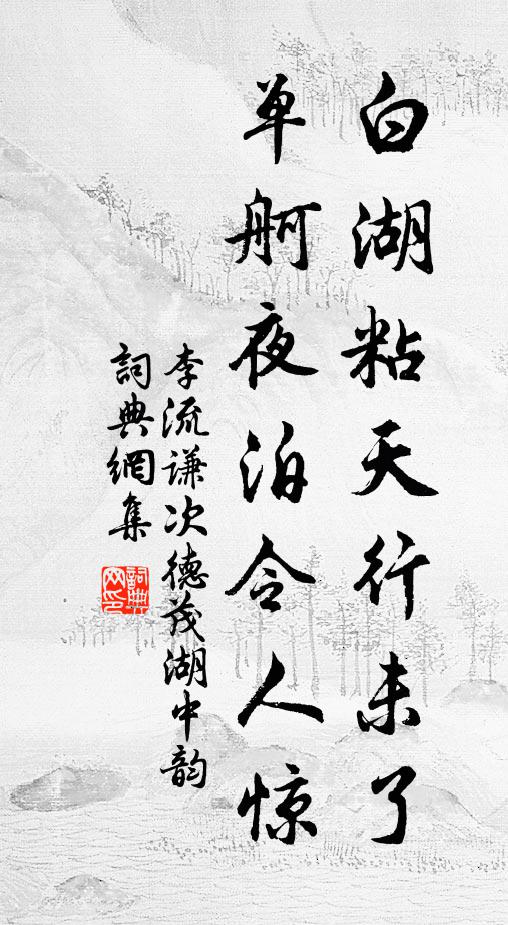 白湖粘天行未了
单舸夜泊令人惊
李流谦次德茂湖中韵
詞典網集
詞典
网印